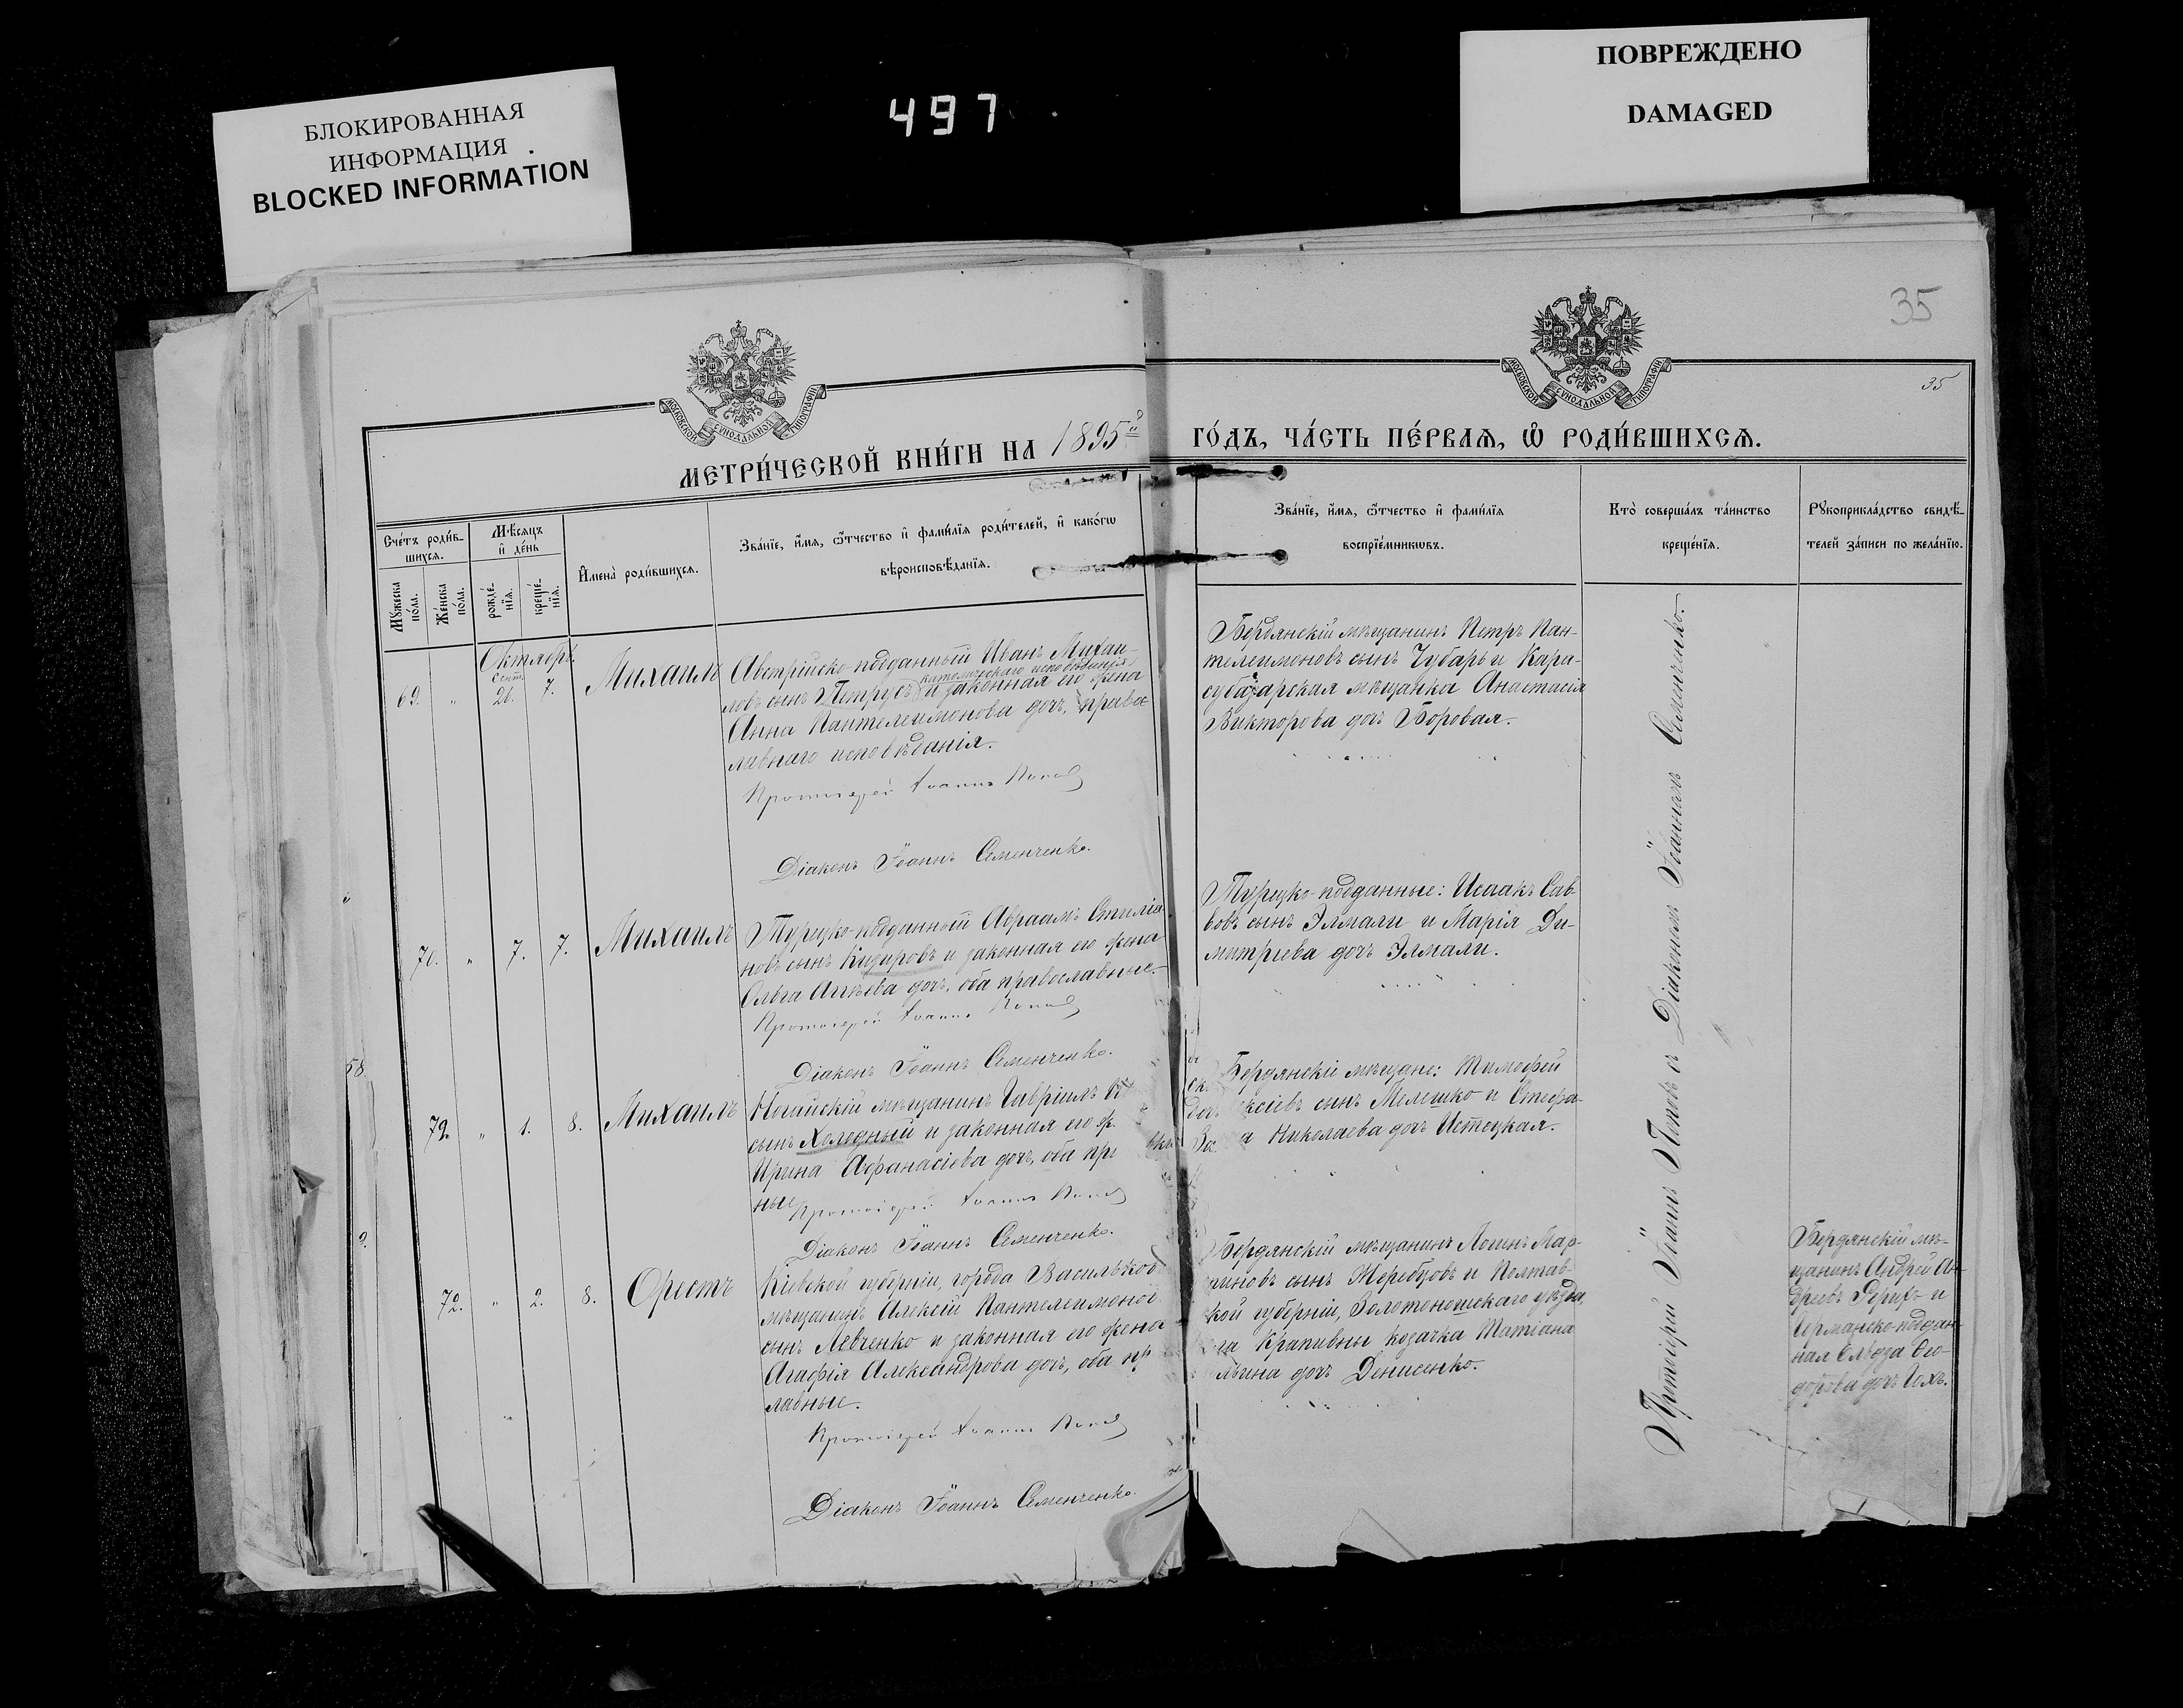 БЛОКИРОВАННАЯ
ИНФОРМАЦИЯ
BLOCKED INFORMATION
497
ПОВРЕЖДЕНО
DAMAGED
35
35
МОСКОВСКОЙ СУНОДАЛЬНОЙ ТИПОГРАФІИ
МОСКОВСКОЙ СУНОДАЛЬНОЙ ТИПОГРАФІИ
МЕТРИ́ЧЕСКОЙ КНИ́ГИ НА 1895й
ГО́ДЪ, ЧА́СТЬ ПЕ́РВАѦ, Ѿ РОДИ́ВШИХСѦ.
Сче́тъ роди́в-
шихсѧ.
Мꙋжеска по́ла.
Же́нска по́ла.
Мѣ́сѧцъ
и҆ де́нь
рожде́-
нїѧ.
креще́-
нїѧ.
И҆мена̀ роди́вшихсѧ.
Зва́нїе, и҆́мѧ, ѻ҆́тчество и҆ фами́лїѧ роди́телей, и҆ како́гѡ
вѣроисповѣ́данїѧ.
Зва́нїе, и҆́мѧ, ѻ҆́тчество и҆ фами́лїѧ
воспрїе́мникѡвъ.
Кто̀ соверша́лъ та́инство
креще́нїѧ.
Рꙋкоприкла́дство свидѣ́-
телей за́писи по жела́нїю.
Октябрь.
69. " Сент. 26. 7. Михаилъ
Австрійско-подданный Иванъ Михаи-
католическаго исповѣданія
ловъ сынъ Петрусъ и законная его жена
Анна Пантелеимонова дочь, правос
лавнаго исповѣданія.
Протоіерей Іоаннъ Поповъ
Діаконъ Іоаннъ Семенченко.
Бердянскій мѣщанинъ Петръ Пан-
телеимоновъ сынъ Чубарь и Кара-
субазарская мѣщанка Анастасія
Викторова дочь Боровая.
70. " 7. 7. Михаилъ
Турецко-подданный Авраамъ Стиліа
новъ сынъ Кизировъ и законная его жена
Ольга дочь, оба православные.
Протоіерей Іоаннъ Поповъ
Діаконъ Іоаннъ Семенченко.
Турецко-подданные: Исаакъ Сав-
вовъ сынъ Элмали и Марія Ди-
митріева дочь Элмали.
58.
" 1. 8. Михаилъ
Ногайскій мѣщанинъ Гавріилъ
сынъ Холодный и законная его ж
Ирина Афанасіева дочь, оба пр
ные
Протоіерей Іоаннъ Поповъ
Діаконъ Іоаннъ Семенченко.
Бердянскіе мѣщане: Тимофей
ксіевъ сынъ Мелешко и Стефа-
а Николаева дочь Истецкая.
72. " 2. 8. Орестъ
Кіевской губерніи, города Васильков
мѣщанинъ Алексій Пантелеимонов
сынъ Левченко и законная его жена
Агафія Александрова дочь, оба пр
лавные.
Протоіерей Іоаннъ Поповъ
Діаконъ Іоаннъ Семенченко.
Бердянскій мѣщанинъ Логинъ Мар-
тиновъ сынъ Жеребцовъ и Полтав-
кой губерніи, Золотоношскаго уѣзда,
ла Крапивны козачка Татіана
дочь Денисенко.
Протоіерей Іоаннъ Поповъ съ Діакономъ Іоанномъ Семенченко.
Бердянскій мѣ-
щанинъ Андрей Ан-
дреевъ и
Германско-поддан-
ная Ѳео-
дорова дочь